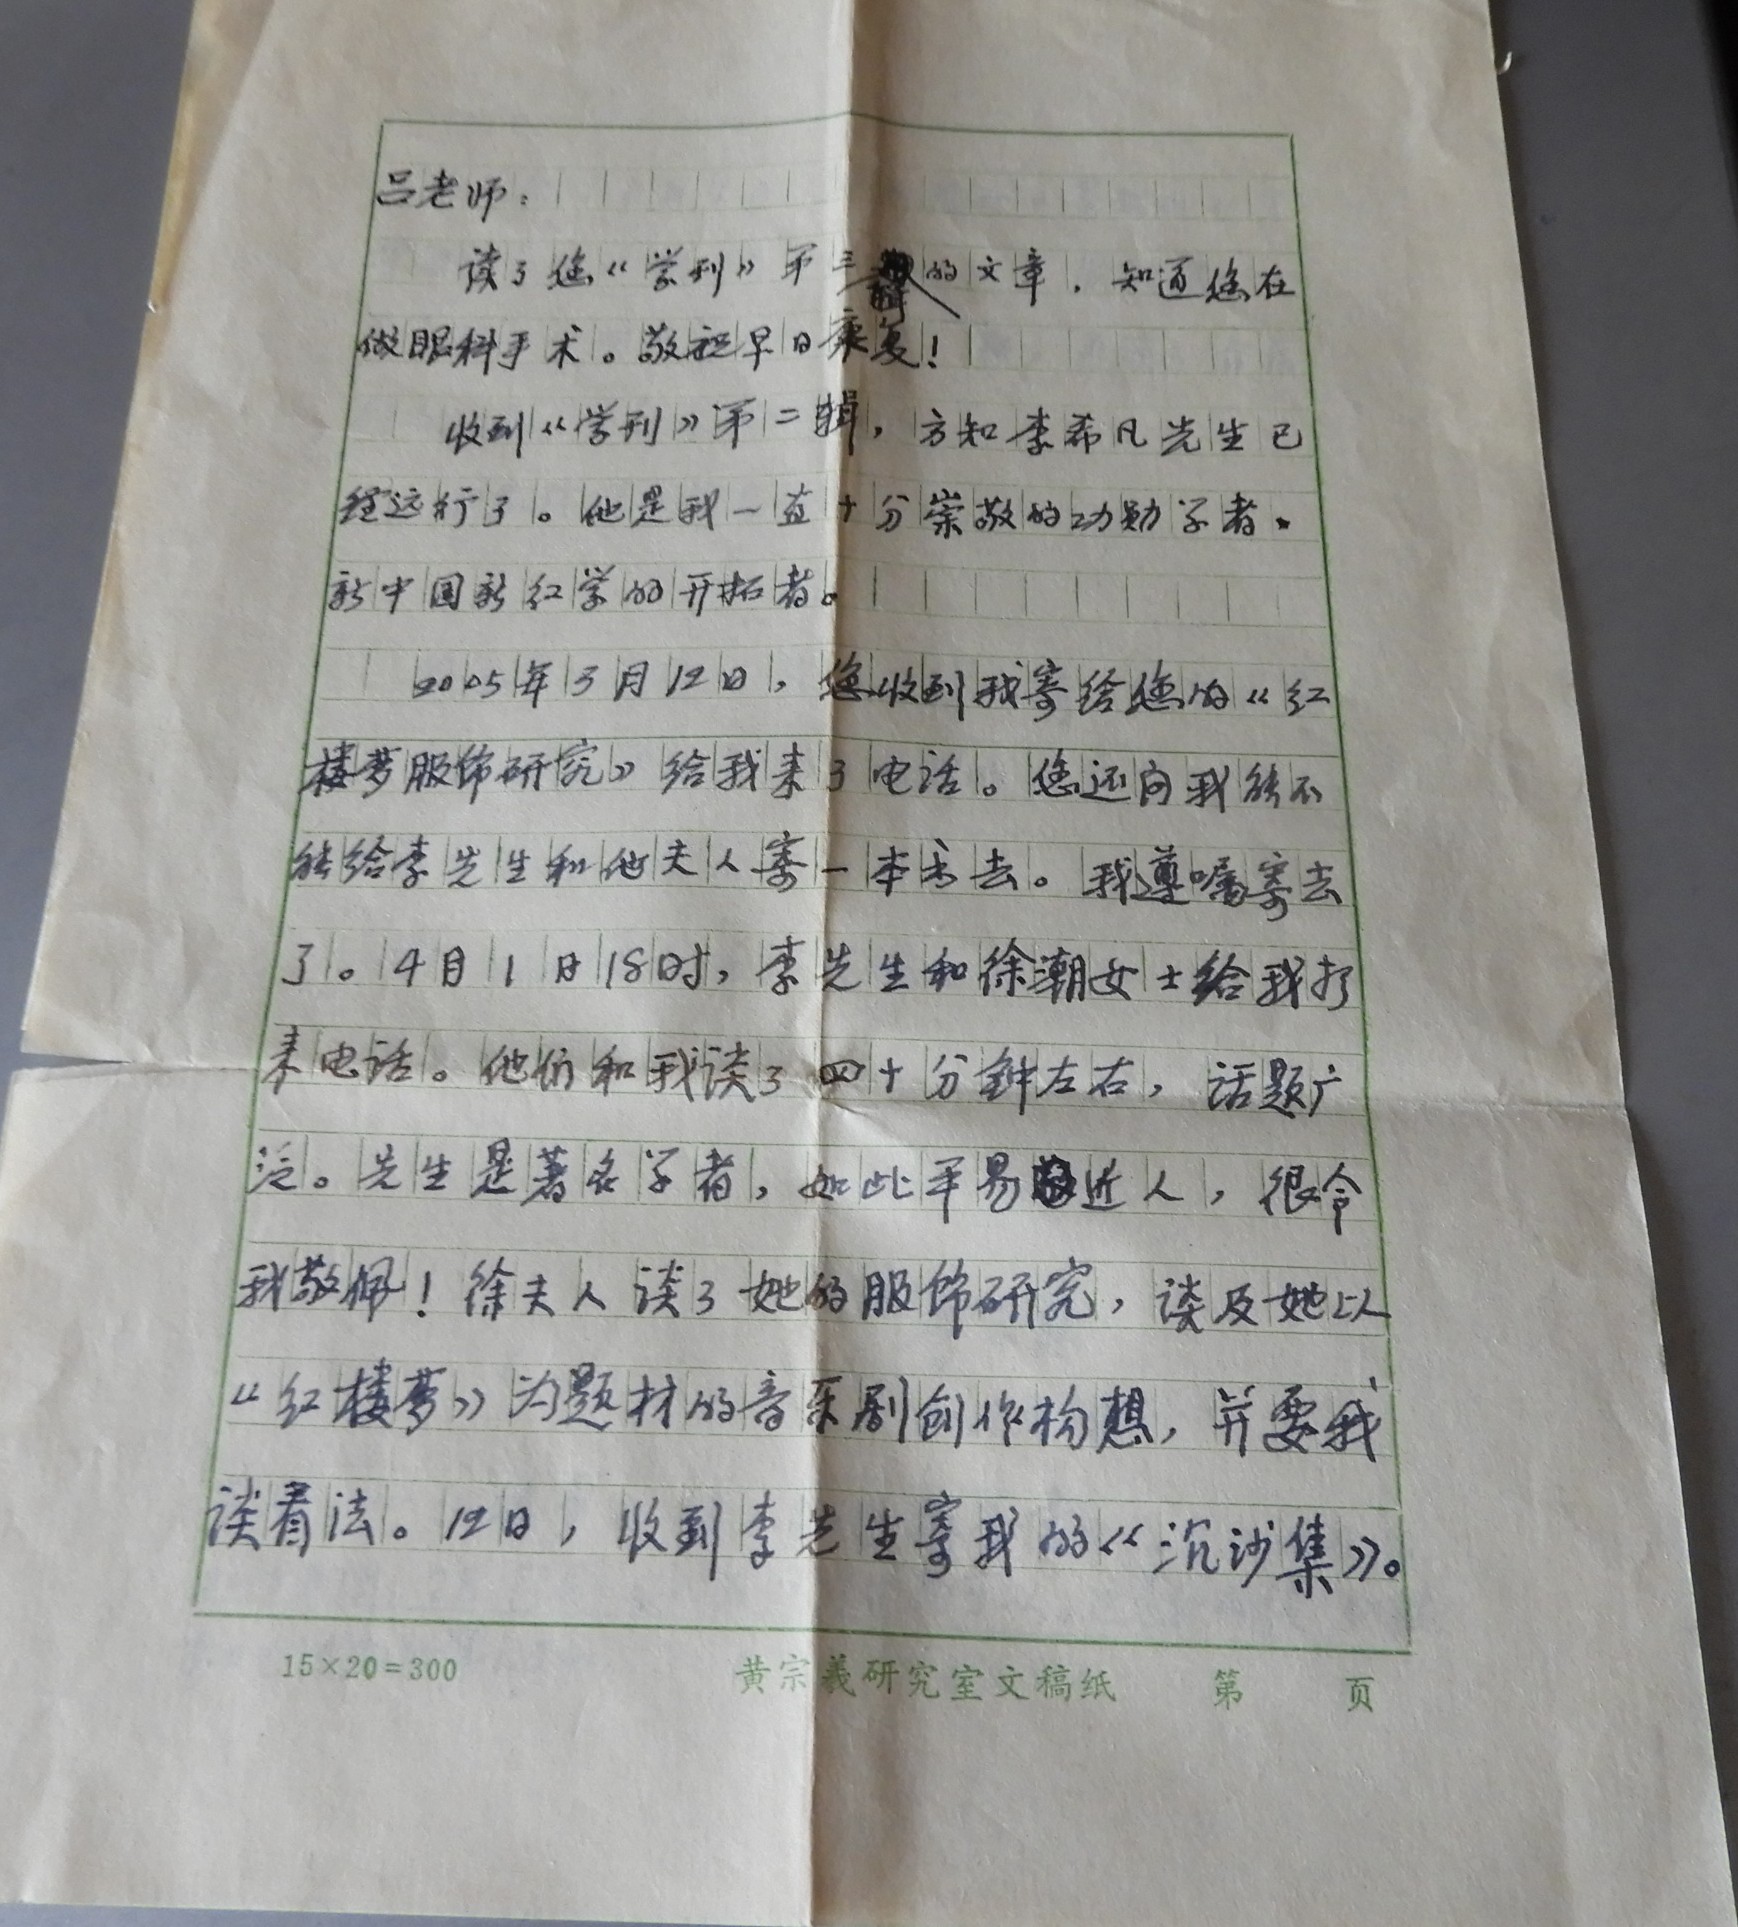 吕老师：
读了您《学刊》第三辑的文章，知道您在
做眼科手术。敬祝早日康复！
收到《学刊》第二辑，方知李希凡先生已
经远行了。他是我一直十分崇敬的功勋学者、
新中国新红学的开拓者。
2005年3月12日，您收到我寄给您的《红
楼梦服饰研究》给我来了电话。您还问我能不
能给李先生和他夫人寄一本书去。我遵嘱寄去
了。4月1日18时，李先生和徐潮女士给我打
来电话。他们和我谈了四十分钟左右，话题广
泛。先生是著名学者，如此平易近人，很令
我敬佩！徐夫人谈了她的服饰研究，谈及她以
《红楼梦》为题材的音乐剧创作构想，并要我
谈看法。12日，收到李先生寄我的《沉沙集》。
15×20=300 黄宗羲研究室文稿纸 第 页